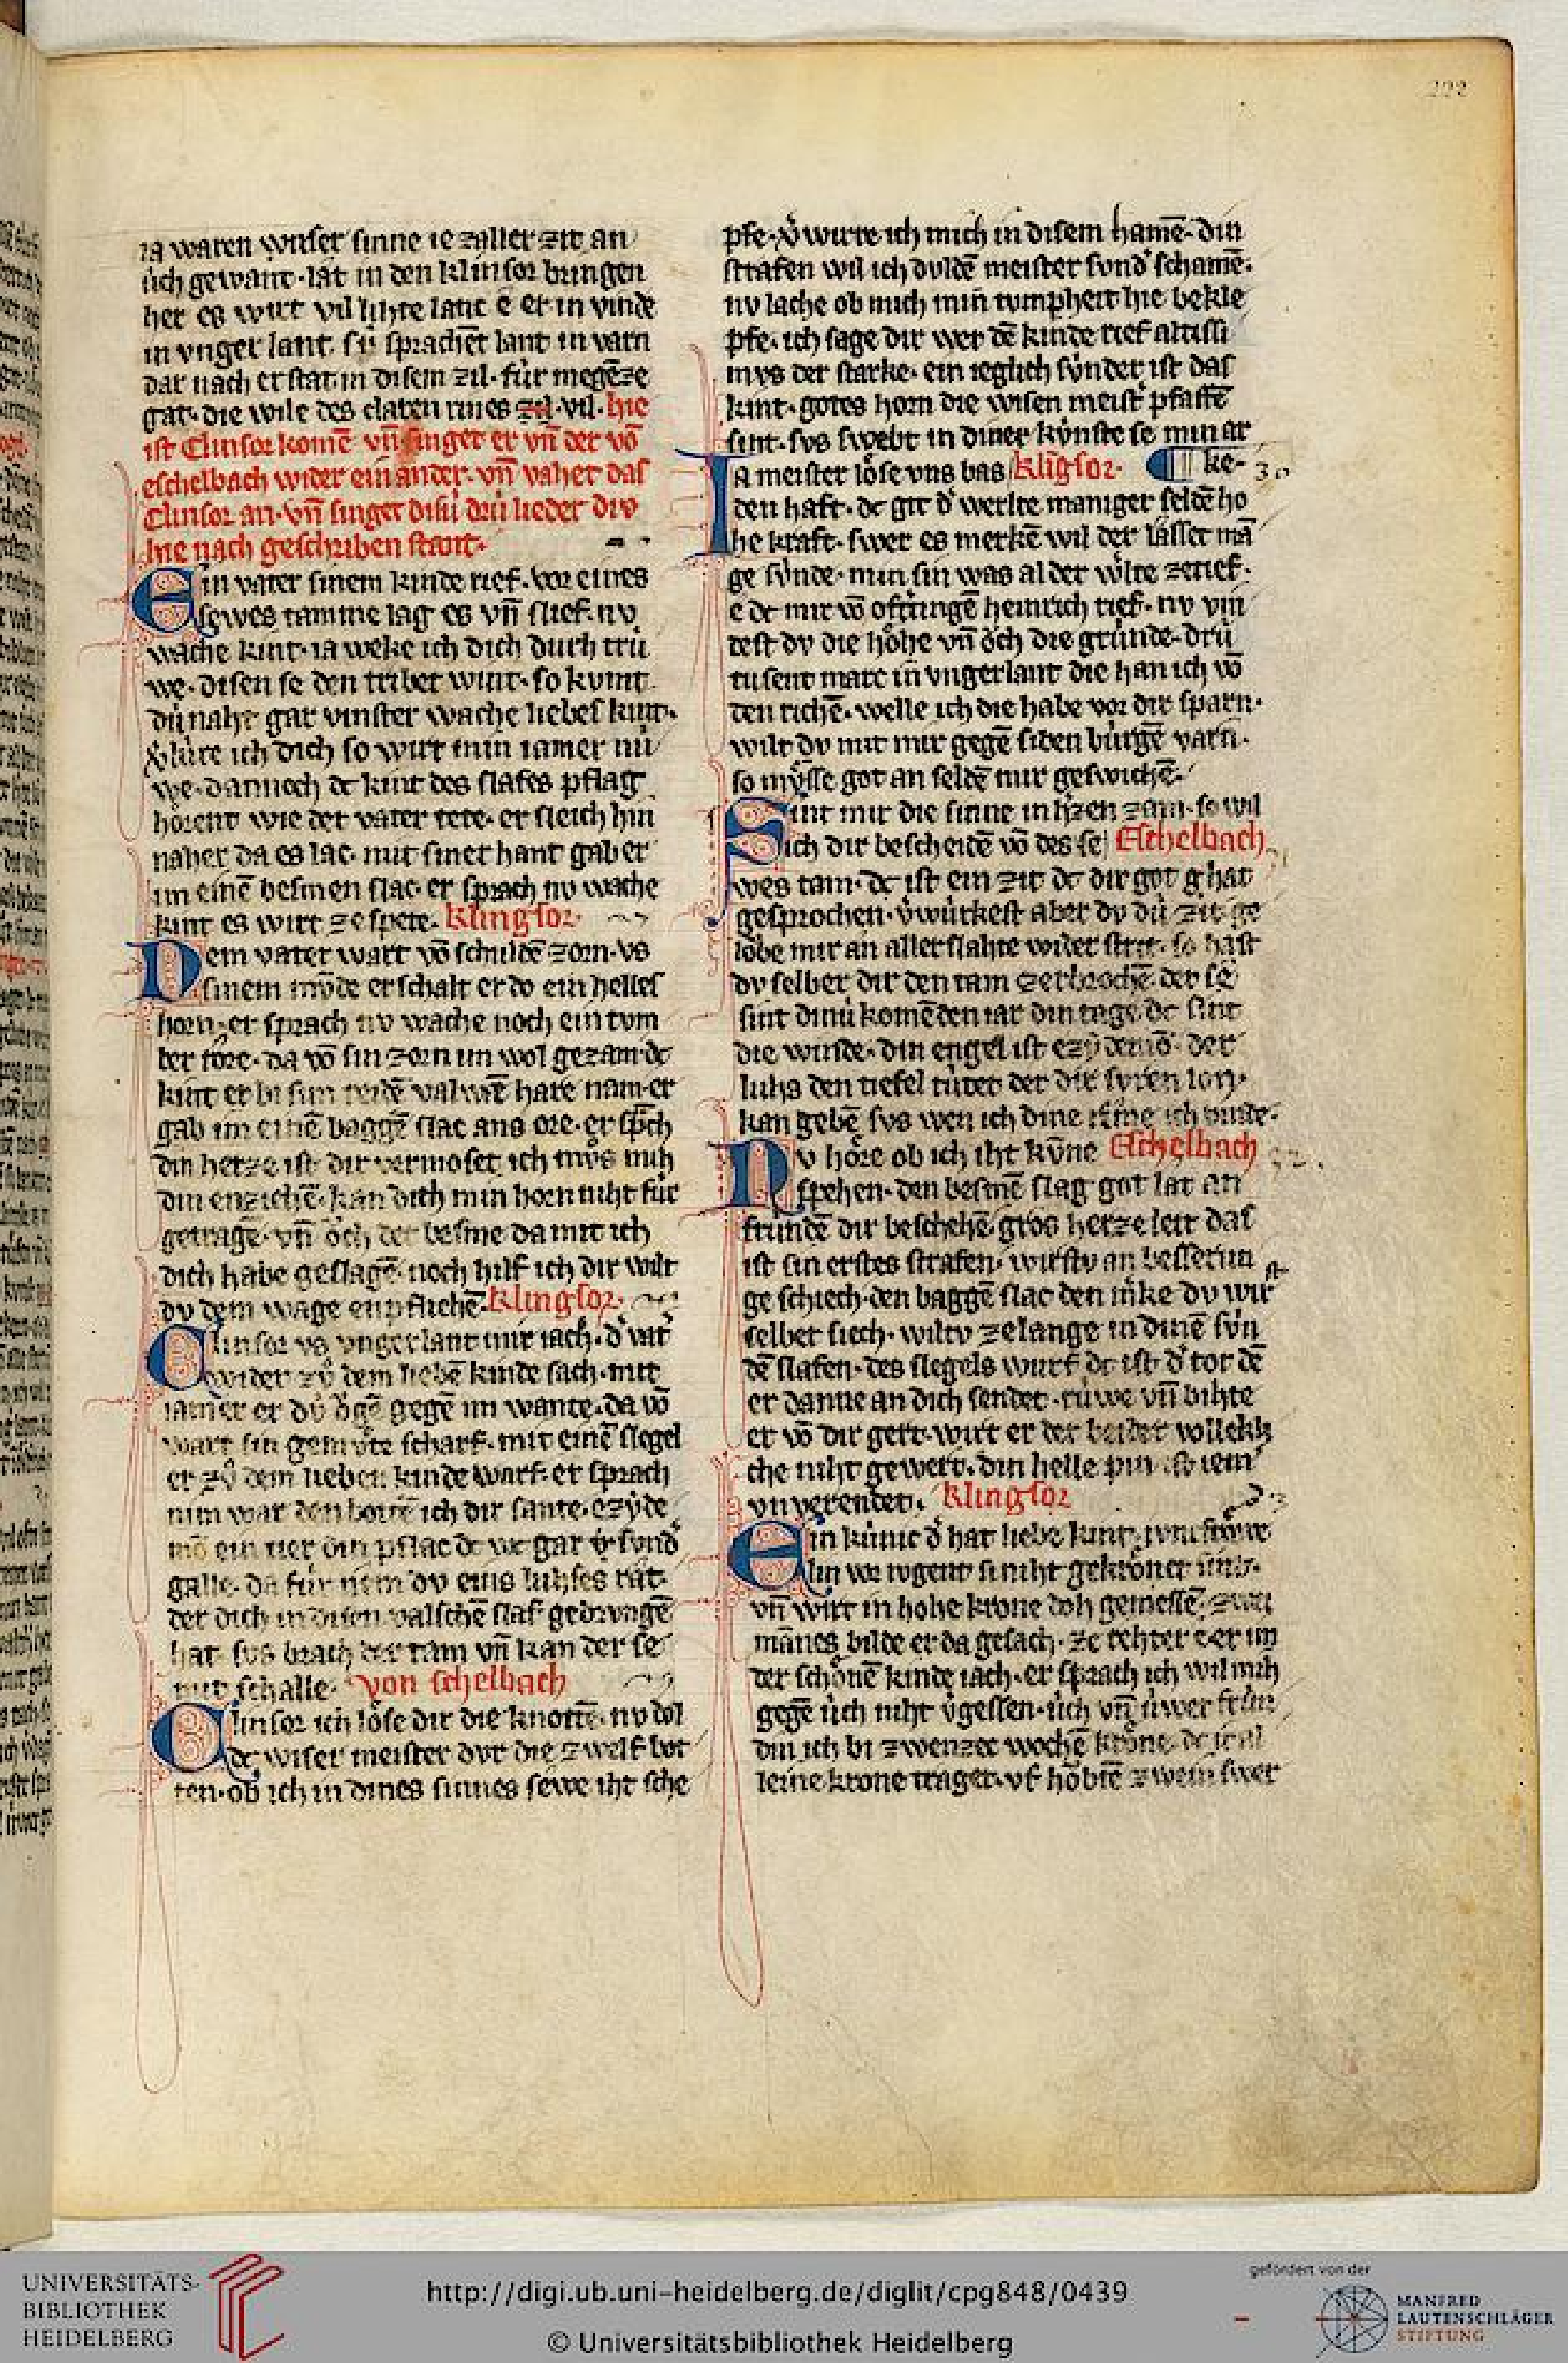 222
ia waren vnſer ſinne ie zaller zit an
úch gewant · lat in den klinſor bringen
her es wirt vil lihte lanc e er in vinde
in vnger lant. ſú ſprachēt lant in varn
dar nach er ſtat in diſem zil · fúr megēze
gat · die wile des claren rines zil · vil · hie
iſt Clinſor komē vn̄ ſinget er vn̄ der vō
eſchelbach wider ein ander · vn̄ vahet daſ
Clinſor an · vn̄ ſinget diſú drú lieder div
hie nach geſchriben ſtant ·
Ein vater ſinem kinde rief · vor eines
ſewes tamme lag es vn̄ ſlief · nv
wache kint · ia weke ich dich durh trú
we · diſen ſe den tribet wint · ſo kvmt
dú naht gar vinſter wache liebeſ kint ·
v̾lúre ich dich ſo wirt min iamer nú
we · dannoch dc kint des ſlafes pflag
hörent wie der vater tete · er ſleich hin
naher da es lac · mit ſiner hant gab er
im einē beſmen ſlac · er ſprach nv wache
kint es wirt ze ſpete · Klingſor ·
Dem vater wart vō ſchuldē zorn · vs
ſinem mvͦde erſchalt er do ein helleſ
horn · er ſprach nv wache noch ein tvm
ber tore · da vō ſin zorn im wol gezam · dc
kint er bi ſim reidē valwē hare nam · er
gab im einē baggē ſlac ans ore · er ſp̄ch
din herze iſt dir vermoſet ich mvͦs mih
din enziehē · kan dich min horn niht fúr
getragē · vn̄ och der beſme da mit ich
dich habe geſlagē · noch hilf ich dir wilt
dv dem wage enpfliehē · Klingſor ·
Clinſor vs vngerlant mir iach · d̾ vat̾
wider zvͦ dem liebē kinde ſach · mit
iamer er dú ögē gegē im wante · da vō
wart ſin gemvͤte ſcharf · mit einē ſlegel
er zvͦ dem lieben kinde warf · er ſprach
nim war den bottē ich dir ſante · ezyde
mō ein tier din pflac dc wc gar v̾ ſvnd̾
galle · da fúr nem dv eins luhſes rat ·
der dich in diſen valſchē ſlaf gedrvngē
hat · ſvs brach der tam vn̄ kan der ſe
mit ſchalle · von ſchelbach
Clinſor ich löſe dir die knottē · nv dol
dc wiſer meiſter dvr die zwelf bot
ten · ob ich in dines ſinnes ſewe iht ſche
pfe · v̾wirre ich mich in diſem hamē · din
ſtrafen wil ich duldē meiſter ſvnd̾ ſchamē ·
nv lache ob mich min tvmpheit hie bekle
pfe · ich ſage dir wer dē kinde rief altiſſi
mvs der ſtarke · ein ieglich ſv́nder iſt daſ
kint · gotes horn die wiſen meiſt̾ pfaffē
ſint · ſvs ſwebt in diner kv́nſte ſe min ar
Ia meiſter löſe vns bas Klīgſor · ¶ ke · 30
den haft · dc git d̾ werlte maniger ſeldē ho
he kraft · ſwer es merkē wil der laſſet mā
ge ſv́nde · min ſin was al der wílte zetief ·
e dc mir vō oftīngē heinrich rief · nv vin
deſt dv die höhe vn̄ öch die grúnde · drú
tuſent marc in vngerlant die han ich vō
den richē · welle ich die habe vor dir ſparn ·
wilt dv mit mir gegē ſiben búrgē varn ·
ſo mvͤſſe got an ſeldē mir geſwichē ·
Sint mir die ſinne in h̾zen zam · ſo wil
ich dir beſcheidē vō des ſe Eſchelbach
wes tam · dc iſt ein zit dc dir got g hat
geſprochen · v̾wúrkeſt aber dv dú zit ge
lobe mir an aller ſlahte wider ſtrit · ſo haſt
dv ſelber dir den tam zerbrochē · der ſe
ſint dinú komēden iar din tage dc ſint
die winde · din engel iſt ezydemō · der
luhs den tiefel tútet der dir ſvren lon ·
kan gebē ſvs wen ich dine rīme ich vinde ·
Nv höre ob ich iht kv́ne Eſchelbach
ſpehen · den beſmē ſlag got lat an
frúndē dir beſchehē · gros herzeleit daſ
iſt ſin erſtes ſtrafen · wirſtv an beſſerun
ge ſchlech · den baggē ſlac den m̾ke dv wirſt
ſelber ſiech · wiltv ze lange in dinē ſv́n
dē ſlafen · des ſlegels wurf dc iſt d̾ tot dē
er danne an dich ſendet · rúwe vn̄ bihte
er vō dir gert · wirt er der beider vollekli
che niht gewert · din helle pin iſt iem̾
vnverendet · Klingſor
Ein kúnic d̾ hat liebe kint
lin vor tvgent ſi niht gekrönet ſint ·
vn̄ wirt in hohe krone doh gemeſſē · zwei
mānes bilde er da geſach · ze rehter e er im
der ſchönē kinde iach · er ſprach ich wil mih
gegē úch niht v̾geſſen · úch vn̄ úwer frún
din ich bi zwenzec wochē kröne · dc ie al
leine krone trager · vf höbtē zwein ſwer
UNIVERSITÄTS-
BIBLIOTHEK
HEIDELBERG
http://digi.ub.uni-heidelberg.de/diglit/cpg848/0439
© Universitätsbibliothek Heidelberg
gefördert von der
MANFRED
LAUTENSCHLÄGER
STIFTUNG